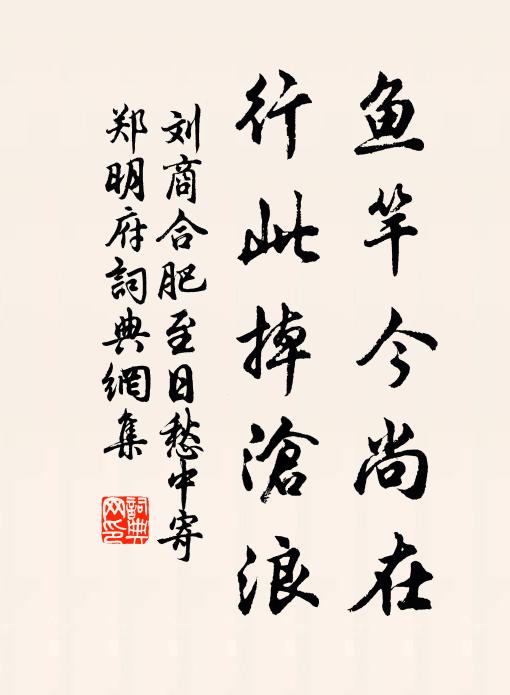 鱼竿今尚在
行此掉滄浪
刘商合肥至日愁中寄
郑明府詞典網集
詞典網印